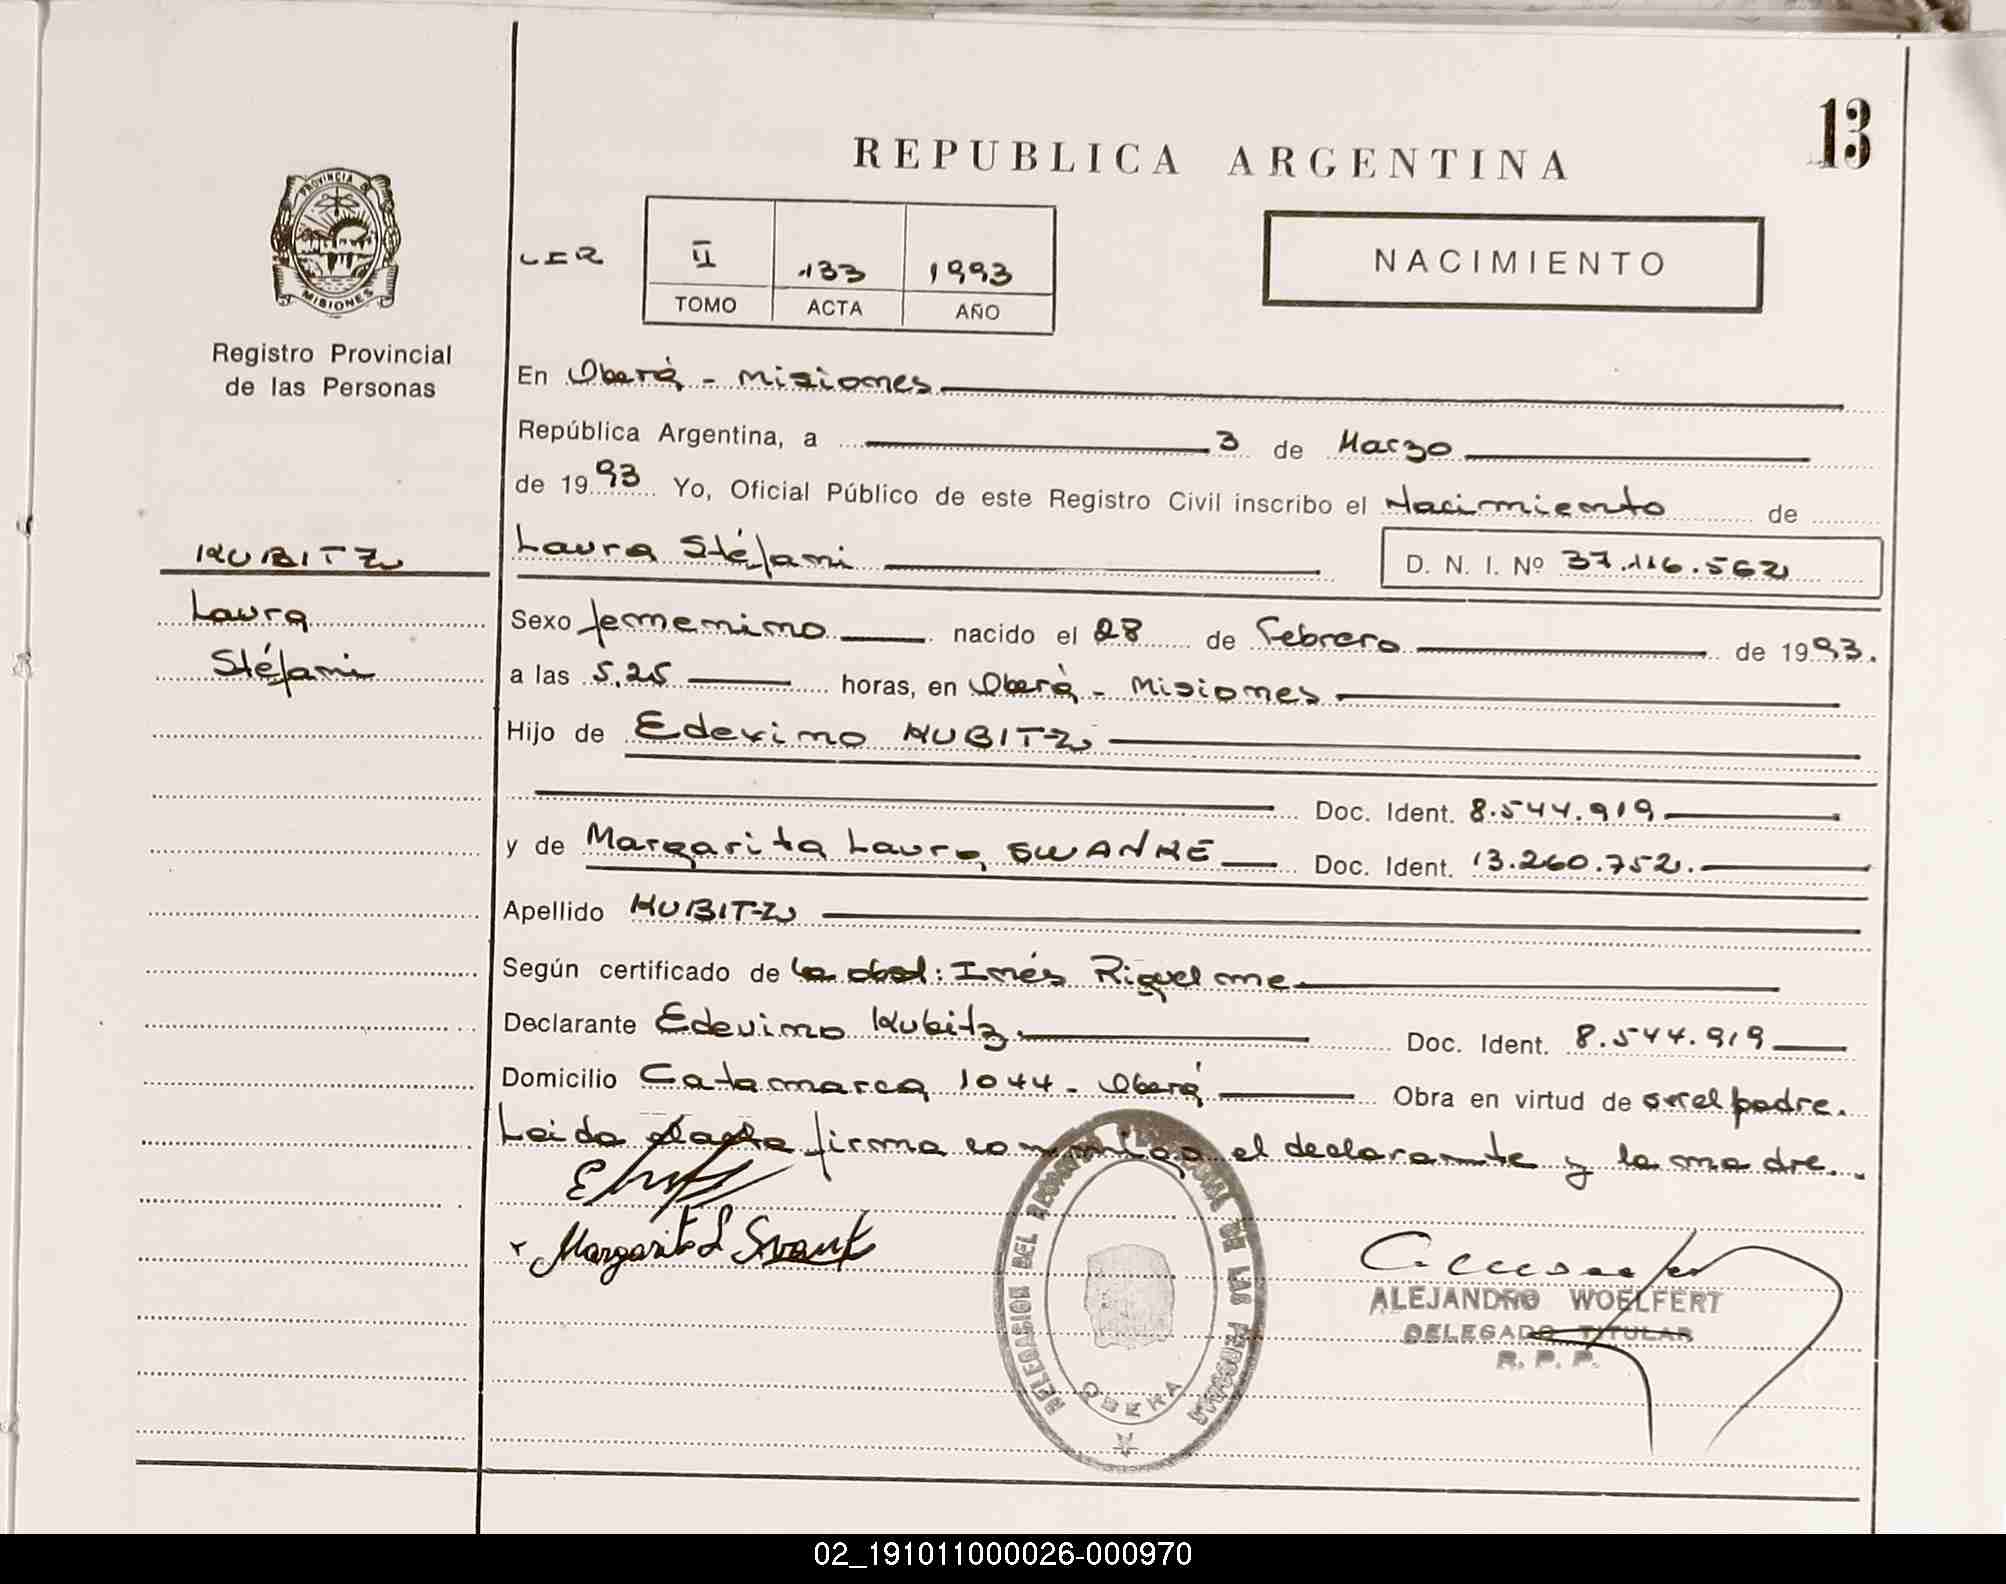 13
REPUBLICA ARGENTINA
PROVINCIA DE
MISIONES
Registro Provincial
de las Personas
II 133 1993
TOMO ACTA AÑO
NACIMIENTO
En Oberá - Misiones
República Argentina, a 3 de Marzo
de 1993 Yo, Oficial Público de este Registro Civil inscribo el Nacimiento de
KUBITZ
Laura Stéfani D. N. I. Nº 37.116.562
Laura
Sexo femenino nacido el 28 de Febrero de 1993.
Stéfani
a las 5.25 horas, en Oberá - Misiones
Hijo de Edevino KUBITZ
Doc. Ident. 8.544.919
y de Margarita Laura SWANKE Doc. Ident. 13.260.752.
Apellido KUBITZ
Según certificado de la obst: Inés Riquelme
Declarante Edevino Kubitz. Doc. Ident. 8.544.919
Domicilio Catamarca 1044 - Oberá Obra en virtud de ser el padre.
Leida el acta firma conmigo el declarante y la madre..
Margarita L Swank
ALEJANDRO WOELFERT
DELEGADO TITULAR
R. P. P.
DELEGACION DEL REGISTRO PROVINCIAL DE LAS PERSONAS
OBERA
02_191011000026-000970